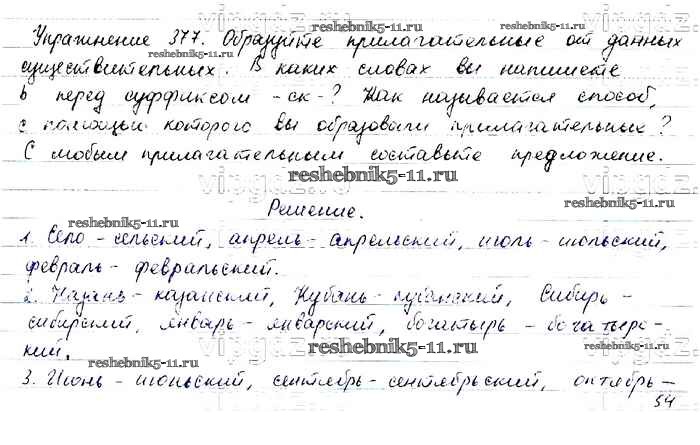 Упражнение 377. Образуйте прилагательные от данных
существительных. В каких словах вы напишете
ь перед суффиксом -ск-? Как называется способ,
с помощью которого вы образовали прилагательные?
С любым прилагательным составьте предложение.
Решение.
1. Село - сельский, апрель - апрельский, июль - июльский,
февраль - февральский.
2. Казань - казанский, Кубань - кубанский, Сибирь -
сибирский, январь - январский, богатырь - богатырс-
кий.
3. Июнь - июньский, сентябрь - сентябрьский, октябрь -
54
reshebnik5-11.ru
reshebnik5-11.ru
reshebnik5-11.ru
reshebnik5-11.ru
reshebnik5-11.ru
reshebnik5-11.ru
reshebnik5-11.ru
reshebnik5-11.ru